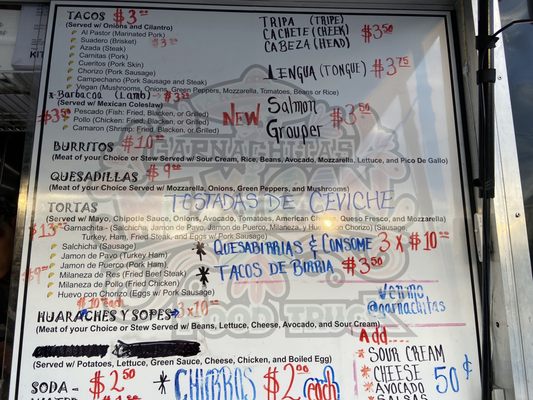 TACOS $3.00
(Served w/ Onions and Cilantro)
Al Pastor (Marinated Pork)
Suadero (Brisket) $3.50
Azada (Steak)
Carnitas (Pork)
Cueritos (Pork Skin)
Chorizo (Pork Sausage)
Campechano (Pork Sausage and Steak)
Vegan (Mushrooms, Onions, Green Peppers, Mozzarella, Tomatoes, Beans or Rice)
x-Barbacoa (Lamb) $3.50
(Served w/ Mexican Coleslaw)
$3.50
Pescado (Fish: Fried, Blacken, or Grilled)
Pollo (Chicken: Fried, Blacken, or Grilled)
Camaron (Shrimp: Fried, Blacken, or Grilled)
TRIPA (TRIPE)
CACHETE (CHEEK) $3.50
CABEZA (HEAD)
LENGUA (TONGUE) $3.75
NEW Salmon
Grouper $3.50
BURRITOS $10.00
(Meat of your Choice or Stew Served w/ Sour Cream, Rice, Beans, Avocado, Mozzarella, Lettuce, and Pico De Gallo)
QUESADILLAS $9.00
(Meat of your Choice Served w/ Mozzarella, Onions, Green Peppers, and Mushrooms)
TOSTADAS DE CEVICHE
TORTAS
(Served w/ Mayo, Chipotle Sauce, Onions, Avocado, Tomatoes, American Cheese, Queso Fresco, and Mozzarella)
$13.00
Garnachita- (Salchicha, Jamon de Pavo, Jamon de Puerco, Milanesa, y Huevo con Chorizo) (Sausage,
Turkey, Ham, Fried Steak, and Eggs w/ Pork Sausage)
Salchicha (Sausage)
Jamon de Pavo (Turkey Ham)
Jamon de Puerco (Pork Ham)
Milaneza de Res (Fried Beef Steak)
Milaneza de Pollo (Fried Chicken)
Huevo con Chorizo (Eggs w/ Pork Sausage)
$9.00
* QUESABIRRIAS & CONSOME 3 X $10.00
* TACOS DE BIRRIA $3.50
GARNACHITAS
FOOD TRUCK
Venmo
@garnachitas
HUARACHES Y SOPES 3x10.00
(Meat of your Choice or Stew Served w/ Beans, Lettuce, Cheese, Avocado, and Sour Cream)
(Served w/ Potatoes, Lettuce, Green Sauce, Cheese, Chicken, and Boiled Egg)
SODA - $2.50
* CHURROS $2.00 each
Add....
* SOUR CREAM
* CHEESE
* AVOCADO 50¢
* SALSAS